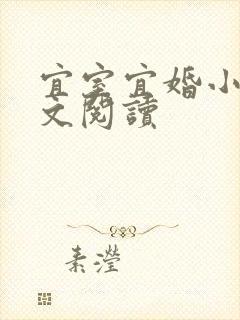 宜室宜婚小
文閱讀
素瀅